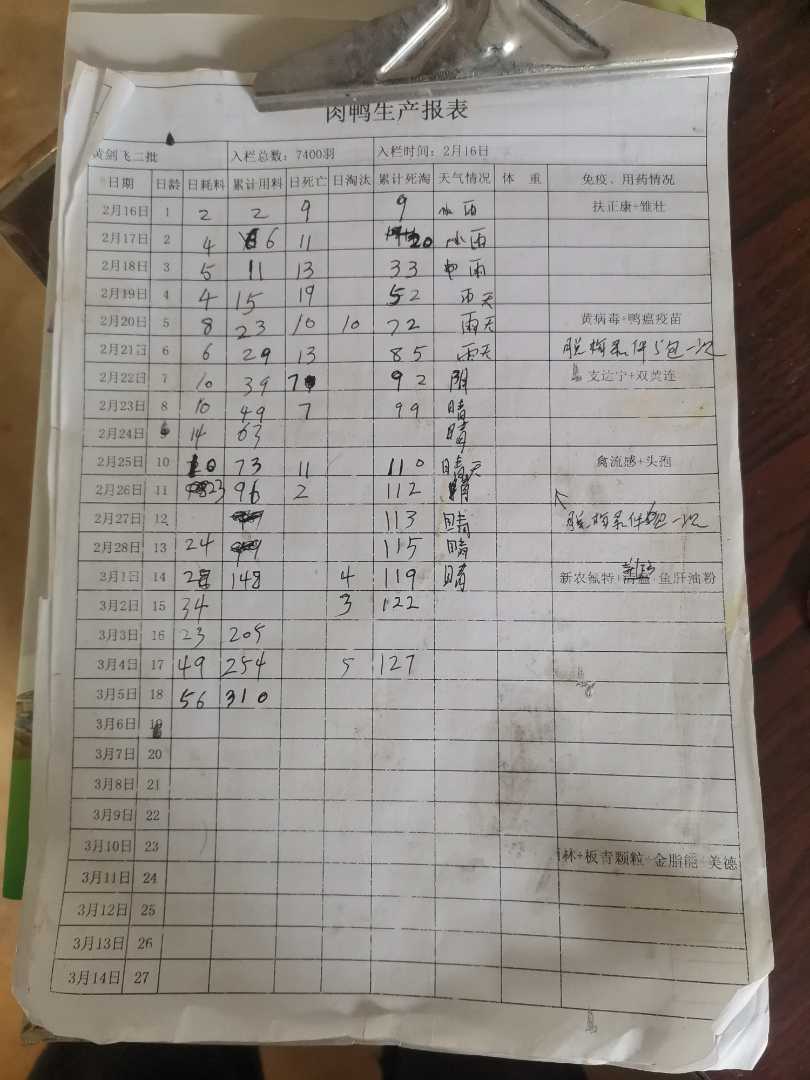 肉鸭生产报表
黄剑飞二批 入栏总数：7400羽 入栏时间：2月16日
日期 日龄 日耗料 累计用料 日死亡 日淘汰 累计死淘 天气情况 体 重 免疫、用药情况
2月16日 1 2 2 9 9 小雨 扶正康+雏壮
2月17日 2 4 6 11 20 小雨
2月18日 3 5 11 13 33 中雨
2月19日 4 4 15 19 52 雨天
2月20日 5 8 23 10 10 72 雨天 黄病毒+鸭瘟疫苗
2月21日 6 6 29 13 85 雨天
2月22日 7 10 39 7 92 阴 支达宁+双黄连
2月23日 8 10 49 7 99 晴
2月24日 14 63 晴
2月25日 10 10 73 11 110 晴天 禽流感+头孢
2月26日 11 23 96 2 112 晴
2月27日 12 113 晴
2月28日 13 24 115 晴
2月1日 14 28 148 4 119 晴 新农氟特 鱼肝油粉
3月2日 15 34 3 122
3月3日 16 23 205
3月4日 17 49 254 5 127
3月5日 18 56 310
3月6日 19
3月7日 20
3月8日 21
3月9日 22
3月10日 23 林+板青颗粒+金脂能+美德
3月11日 24
3月12日 25
3月13日 26
3月14日 27